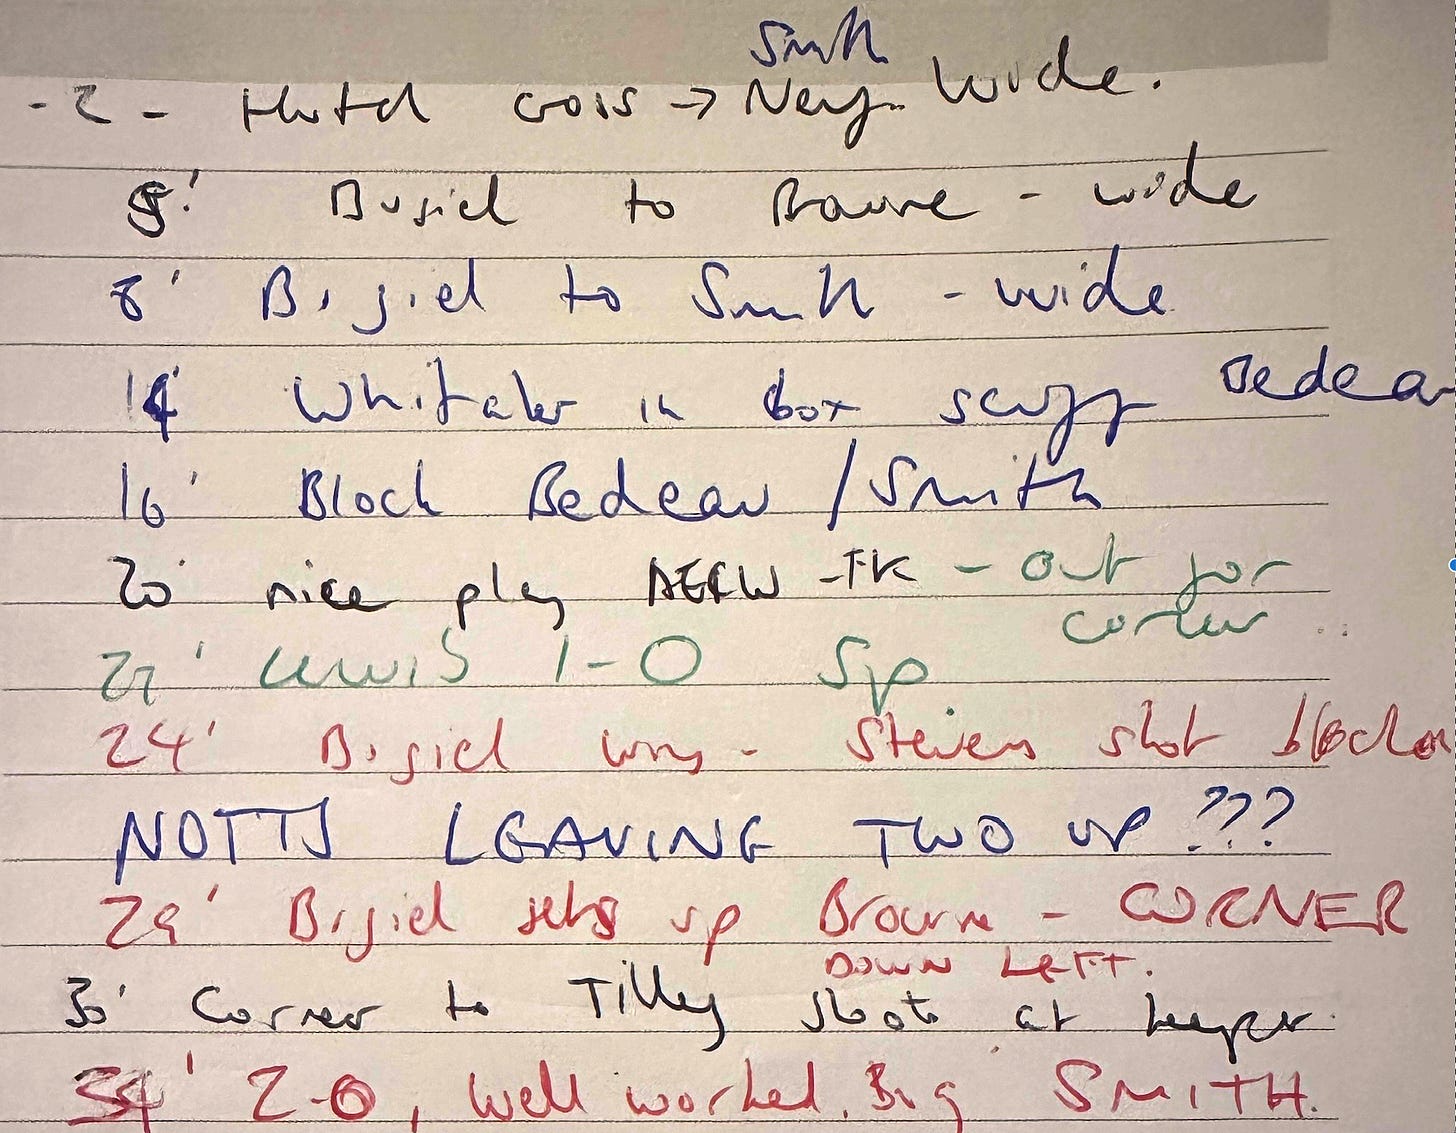 Smith
-2- cross → Ney wide.
8' Bigiel to Bowne - wide
8' Bigiel to Smith - wide
14' Whitaker in box scuff Bedeau
16' Block Bedeau / Smith
20' nice play - TK - out for
corner
27' Lewis 1-0 Sp
24' Bigiel wins - Stevens shot blocked
NOTTS LEAVING TWO UP ???
29' Bigiel sets up Browne - CORNER
DOWN LEFT.
30' Corner to Tilley shoots at keeper.
34' 2-0, well worked. Big SMITH.